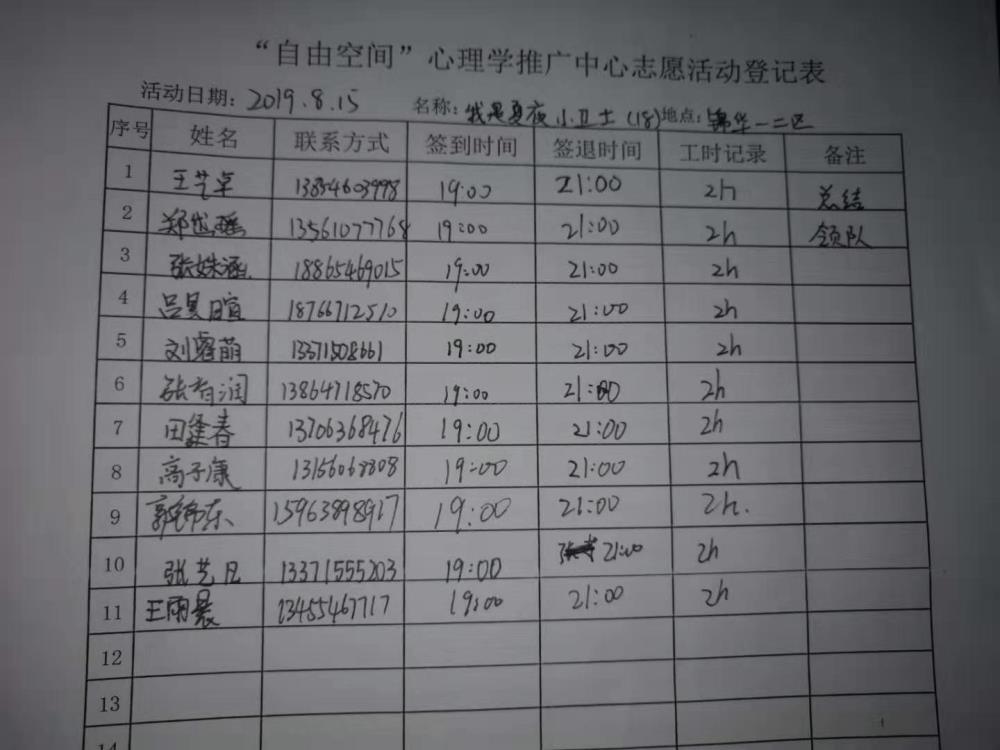 “自由空间”心理学推广中心志愿活动登记表
活动日期：2019.8.15 名称：我是夏夜小卫士(18) 地点：锦华一二区
序号 姓名 联系方式 签到时间 签退时间 工时记录 备注
1 王艺卓 13854603998 19:00 21:00 2h 总结
2 郑岱瑶 13561077768 19:00 21:00 2h 领队
3 张姝涵 18865469015 19:00 21:00 2h
4 吕昊暄 18766712510 19:00 21:00 2h
5 刘睿萌 13371508661 19:00 21:00 2h
6 张春润 13864718570 19:00 21:00 2h
7 田逢春 13706368476 19:00 21:00 2h
8 高子康 13156068808 19:00 21:00 2h
9 郭锦东 15963898917 19:00 21:00 2h.
10 张艺凡 13371555203 19:00 21:00 2h
11 王雨晨 13455467717 19:00 21:00 2h
12
13
14